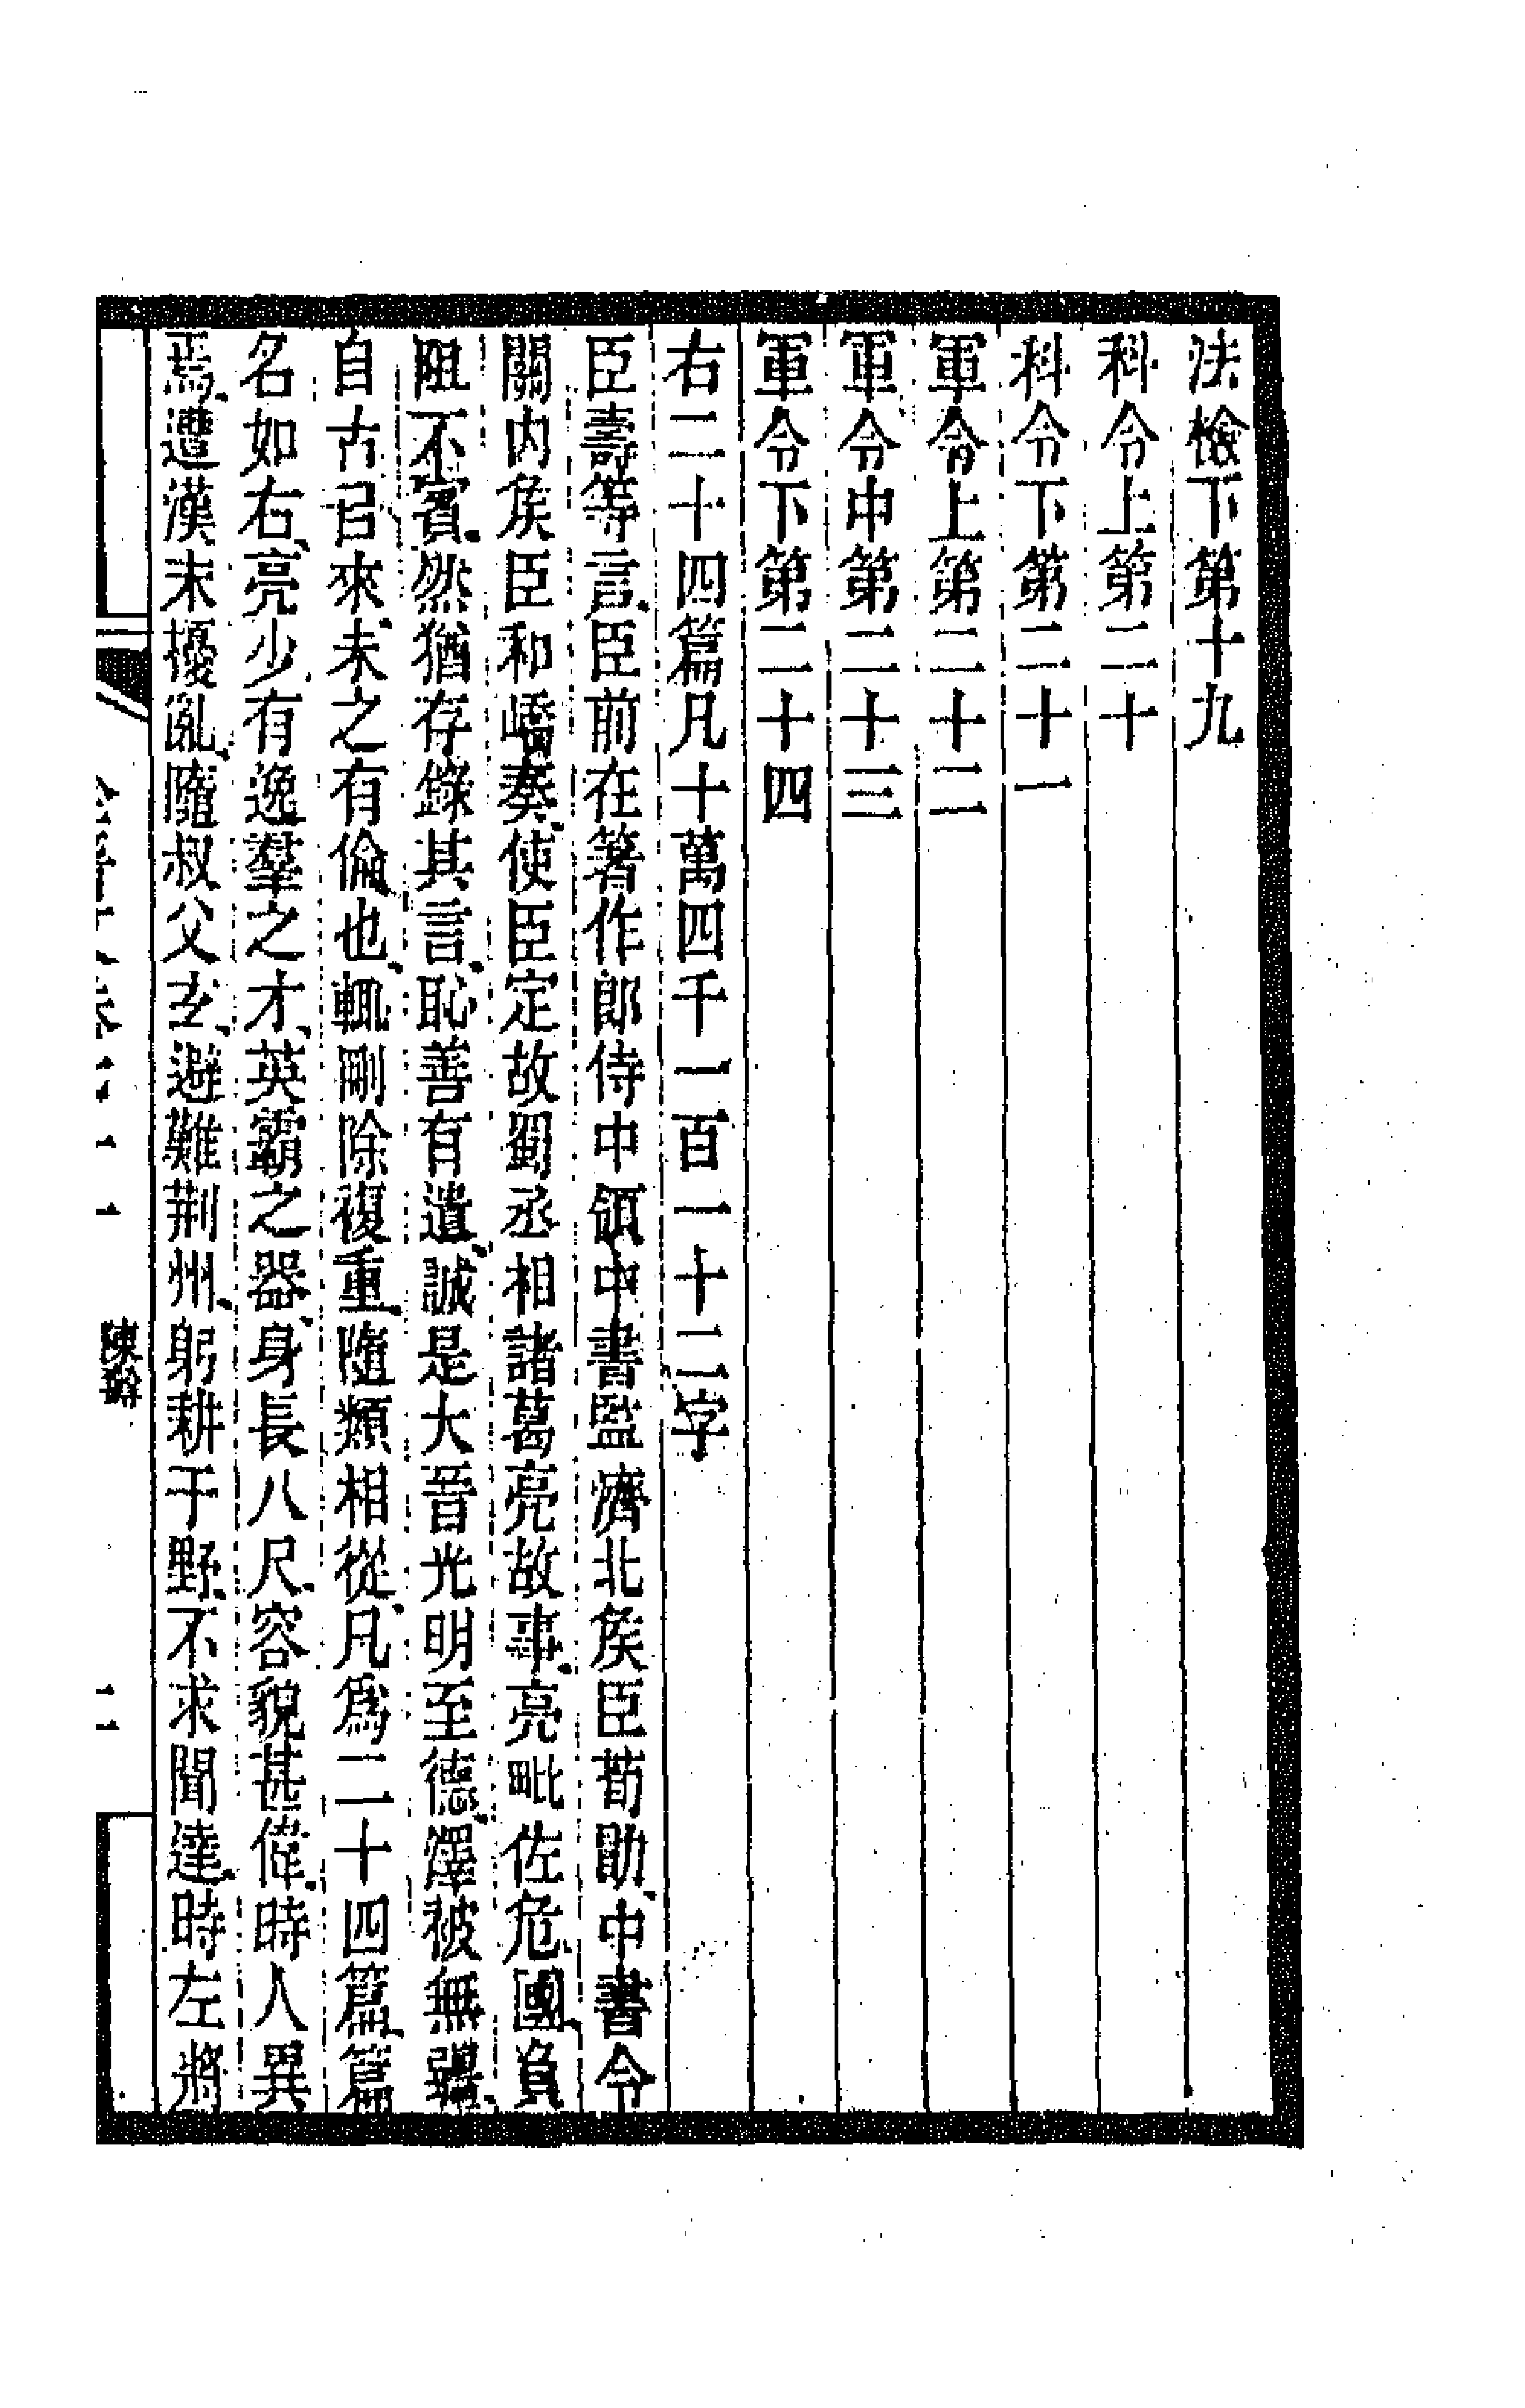 法檢下第十九
科令上第二十
科令下第二十一
軍令上第二十二
軍令中第二十三
軍令下第二十四
右二十四篇凡十萬四千一百一十二字
臣壽等言、臣前在箸作郎侍中領中書監濟北矦臣荀勖、中書令
關內矦臣和嶠奏、使臣定故蜀丞相諸葛亮故事、亮毗佐危國、負
阻不賓、然猶存錄其言、恥善有遺、誠是大晉光明至德、澤被無疆、
自古㠯來、未之有倫也、輒刪除複重、隨類相從、凡爲二十四篇、篇
名如右、亮少有逸羣之才、英霸之器、身長八尺、容貌甚偉、時人異
焉、遭漢末擾亂、隨叔父玄、避難荆州、躬耕于野、不求聞達、時左將
陳壽
二